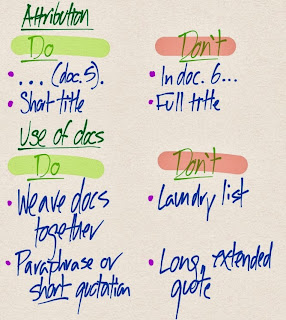 Attribution
Do
Don't
• ... (doc. 5).
• In doc. 6...
• Short title
• Full title
Use of docs
Do
Don't
• Weave docs
together
• Laundry list
• Paraphrase or
short quotation
• Long, extended
quote